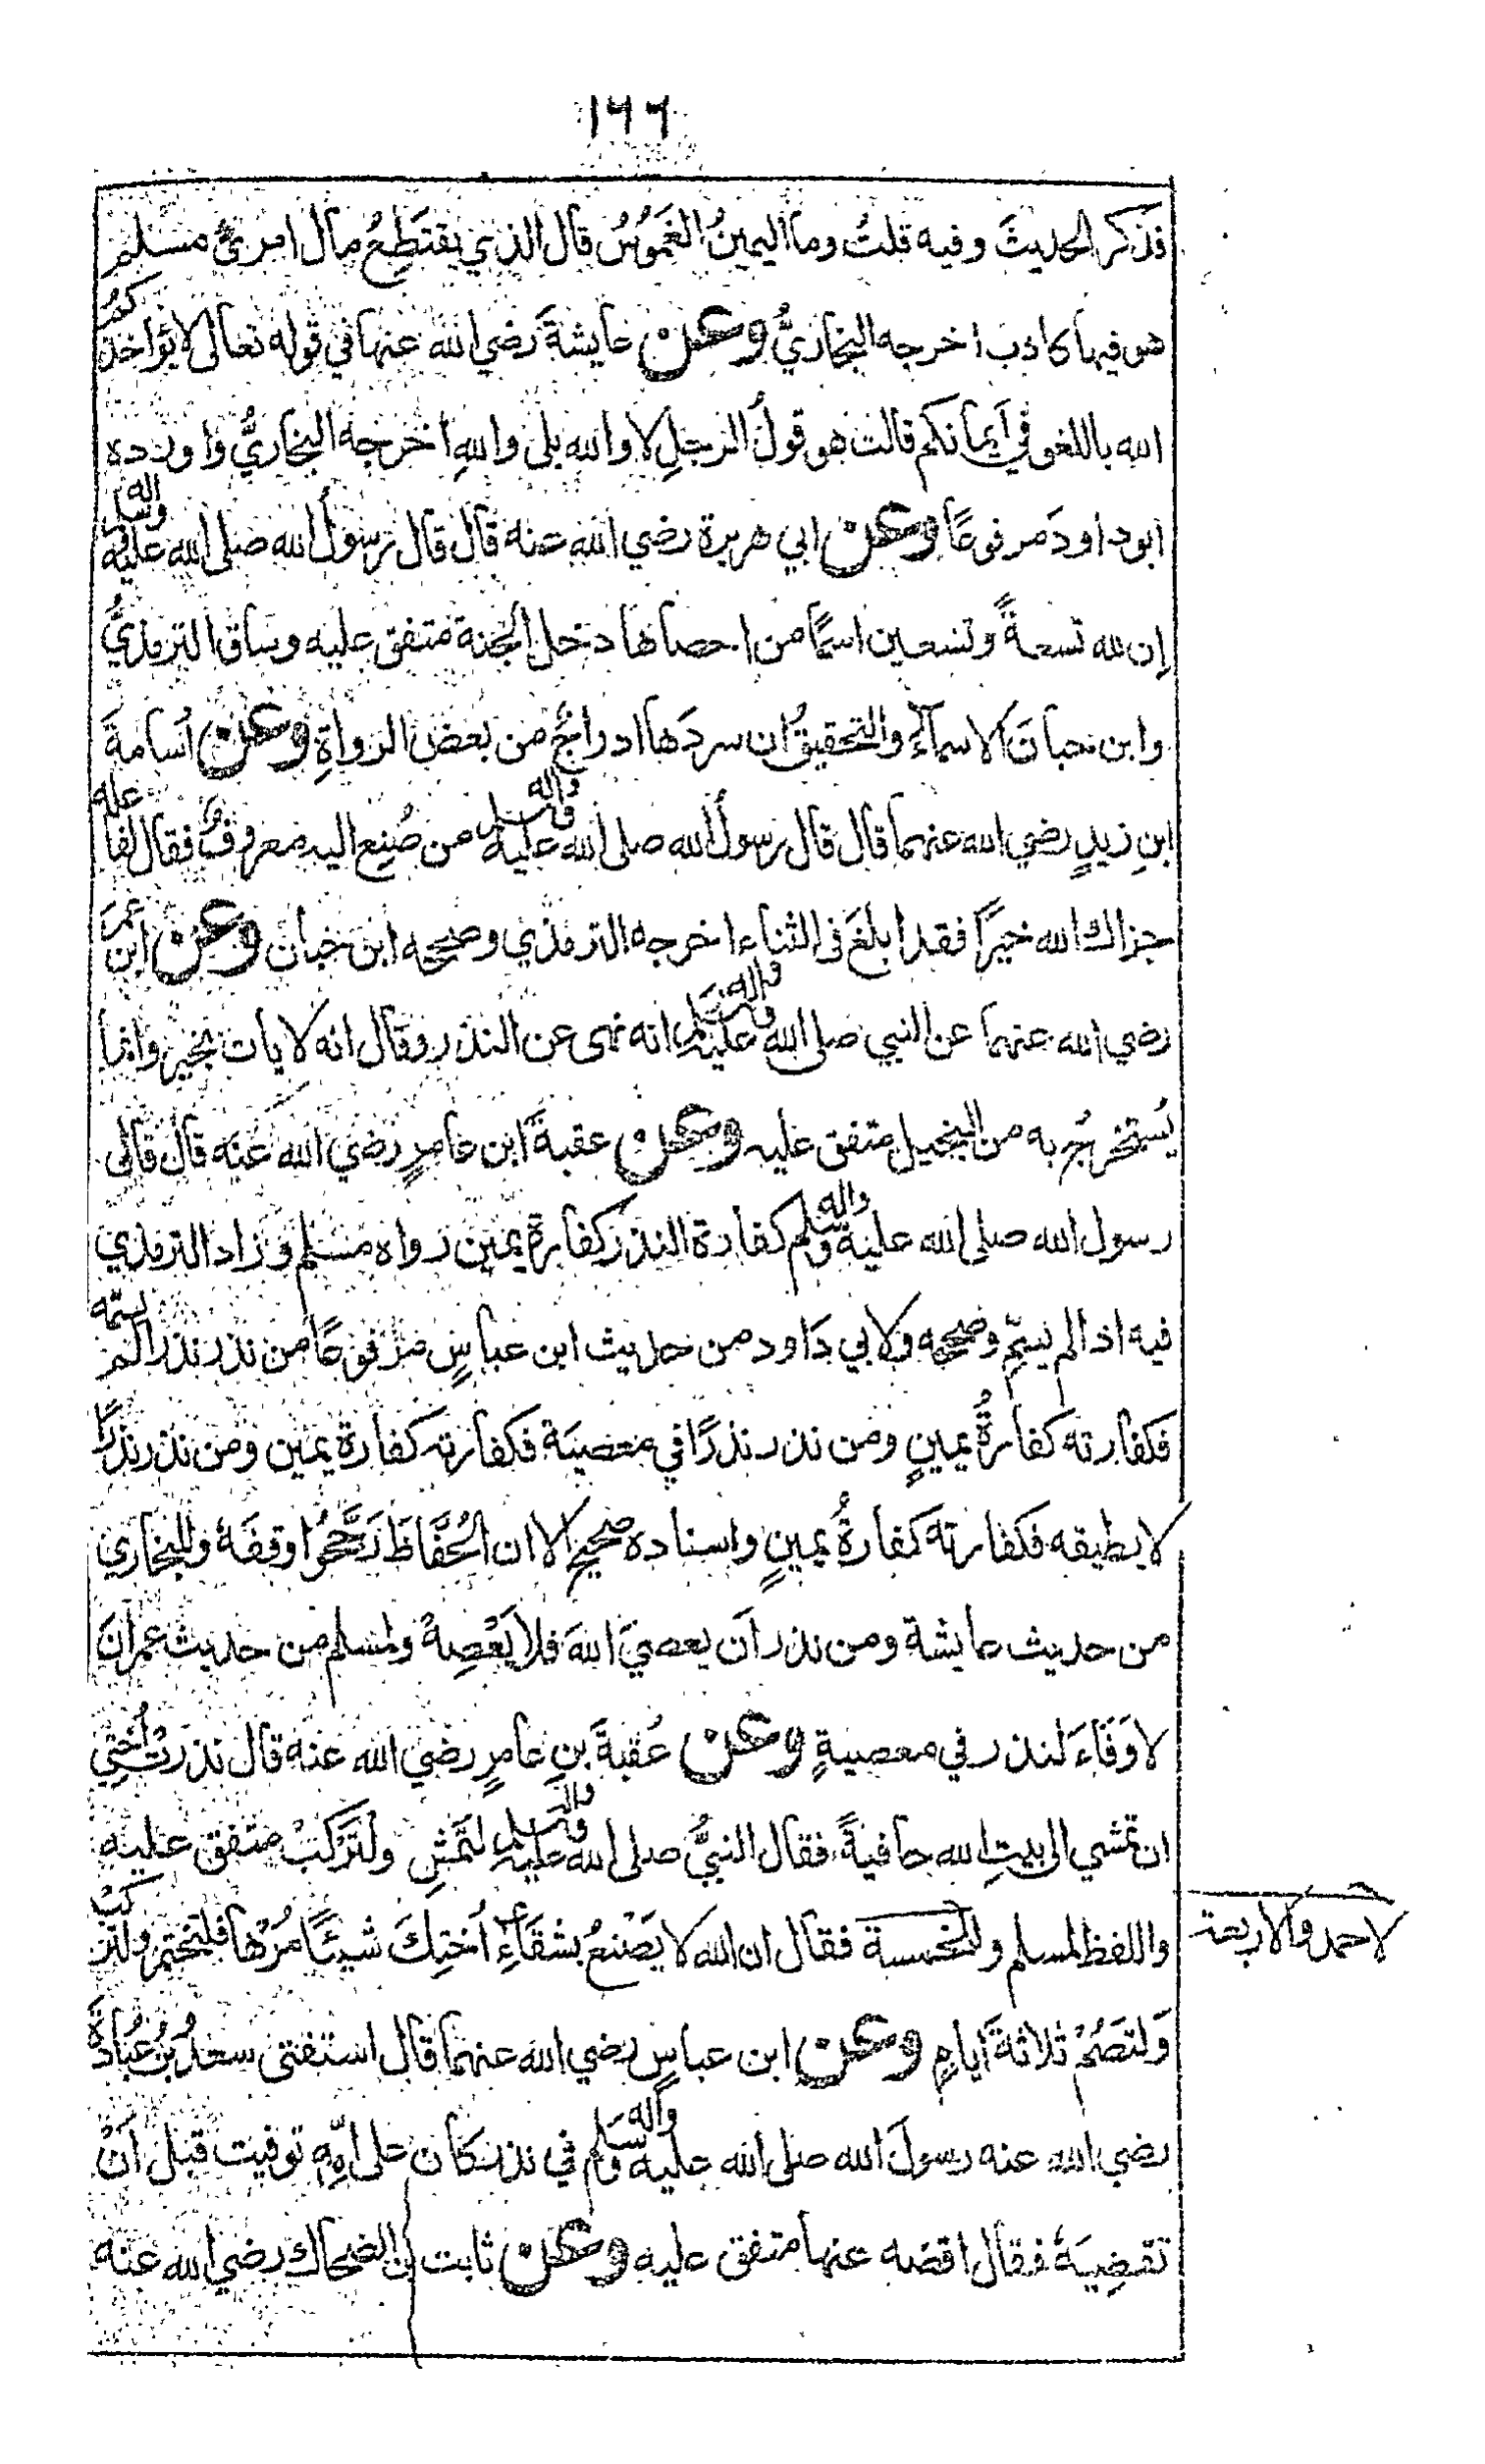 ١٦٦
فذكر الحديثَ وفيه قلتُ وما اليمينُ الغَمُوسُ قال الذي يقتَطِعُ مال امرئ مسلم
هو فيها كاذب اخرجه البخاريُّ وعن عايشةَ رضي الله عنها في قوله تعالى لا يؤاخذكم
الله باللغو في أيمانكم قالت هو قولُ الرجلِ لا والله بلى واللهِ اخرجه البخاريُّ واورده
ابو داودَ مرفوعًا وعن ابي هريرة رضي الله عنه قال قال رسولُ الله صلى الله عليه واله وسلم
إن لله تسعةً وتسعين اسمًا من احصاها دخل الجنة متفق عليه وساق الترمذيُّ
وابن حبانَ الاسماءَ والتحقيقُ ان سردَها ادراجٌ من بعض الرواةِ وعن أسامةَ
ابنِ زيدٍ رضي الله عنهما قال قال رسولُ الله صلى الله عليه واله وسلم من صُنِع اليه معروفٌ فقال لفاعله
جزاك الله خيرًا فقد ابلغَ في الثناء اخرجه الترمذي وصححه ابن حبان وعن ابن عمرَ
رضي الله عنهما عن النبي صلى الله عليه واله وسلم انه نهى عن النذر وقال انه لا يات بخير وانما
يُستخرجُ به من البخيل متفق عليه وعن عقبةَ ابن عامرٍ رضي الله عنه قال قال
رسول الله صلى الله عليه واله وسلم كفارة النذر كفارة يمين رواه مسلم وزاد الترمذي
فيه اذا لم يسمِّ وصححه ولابي داود من حديث ابن عباسٍ مرفوعًا من نذر نذرا لم يسمّه
فكفارته كفارةُ يمينٍ ومن نذر نذرًا في معصية فكفارته كفارة يمين ومن نذر نذرًا
لا يطيقه فكفارته كفارةُ يمينٍ واسناده صحيح الا ان الحُفَّاظَ رَجَّحُوا وقفَهُ وللبخاري
من حديث عايشة ومن نذر أن يعصيَ اللهَ فلا يَعْصِهْ ولمسلم من حديث عمرانَ
لا وَفَاءَ لنذر في معصيةٍ وعن عُقبةَ بنِ عامرٍ رضي الله عنه قال نذرتْ أُختي
ان تمشي الى بيتِ الله حافيةً فقال النبيُّ صلى الله عليه واله وسلم لتَمْشِ ولْتَرْكَبْ متفق عليه
واللفظ لمسلم وللخمسة فقال ان الله لا يَصْنعُ بشقَاءِ أختِكَ شيئًا مُرْها فلتختمر ولتركبْ
لاحمد والاربعة
وَلتَصُمْ ثلاثةَ أيامٍ وعن ابن عباسٍ رضي الله عنهما قال استفتى سعدُ بنُ عُبادَةَ
رضي الله عنه رسولَ الله صلى الله عليه واله وسلم في نذر كان على امِّهِ توفيت قبل أنْ
تقضِيَهُ فقال اقضه عنها متفق عليه وعن ثابت بن الضحاك رضي الله عنه